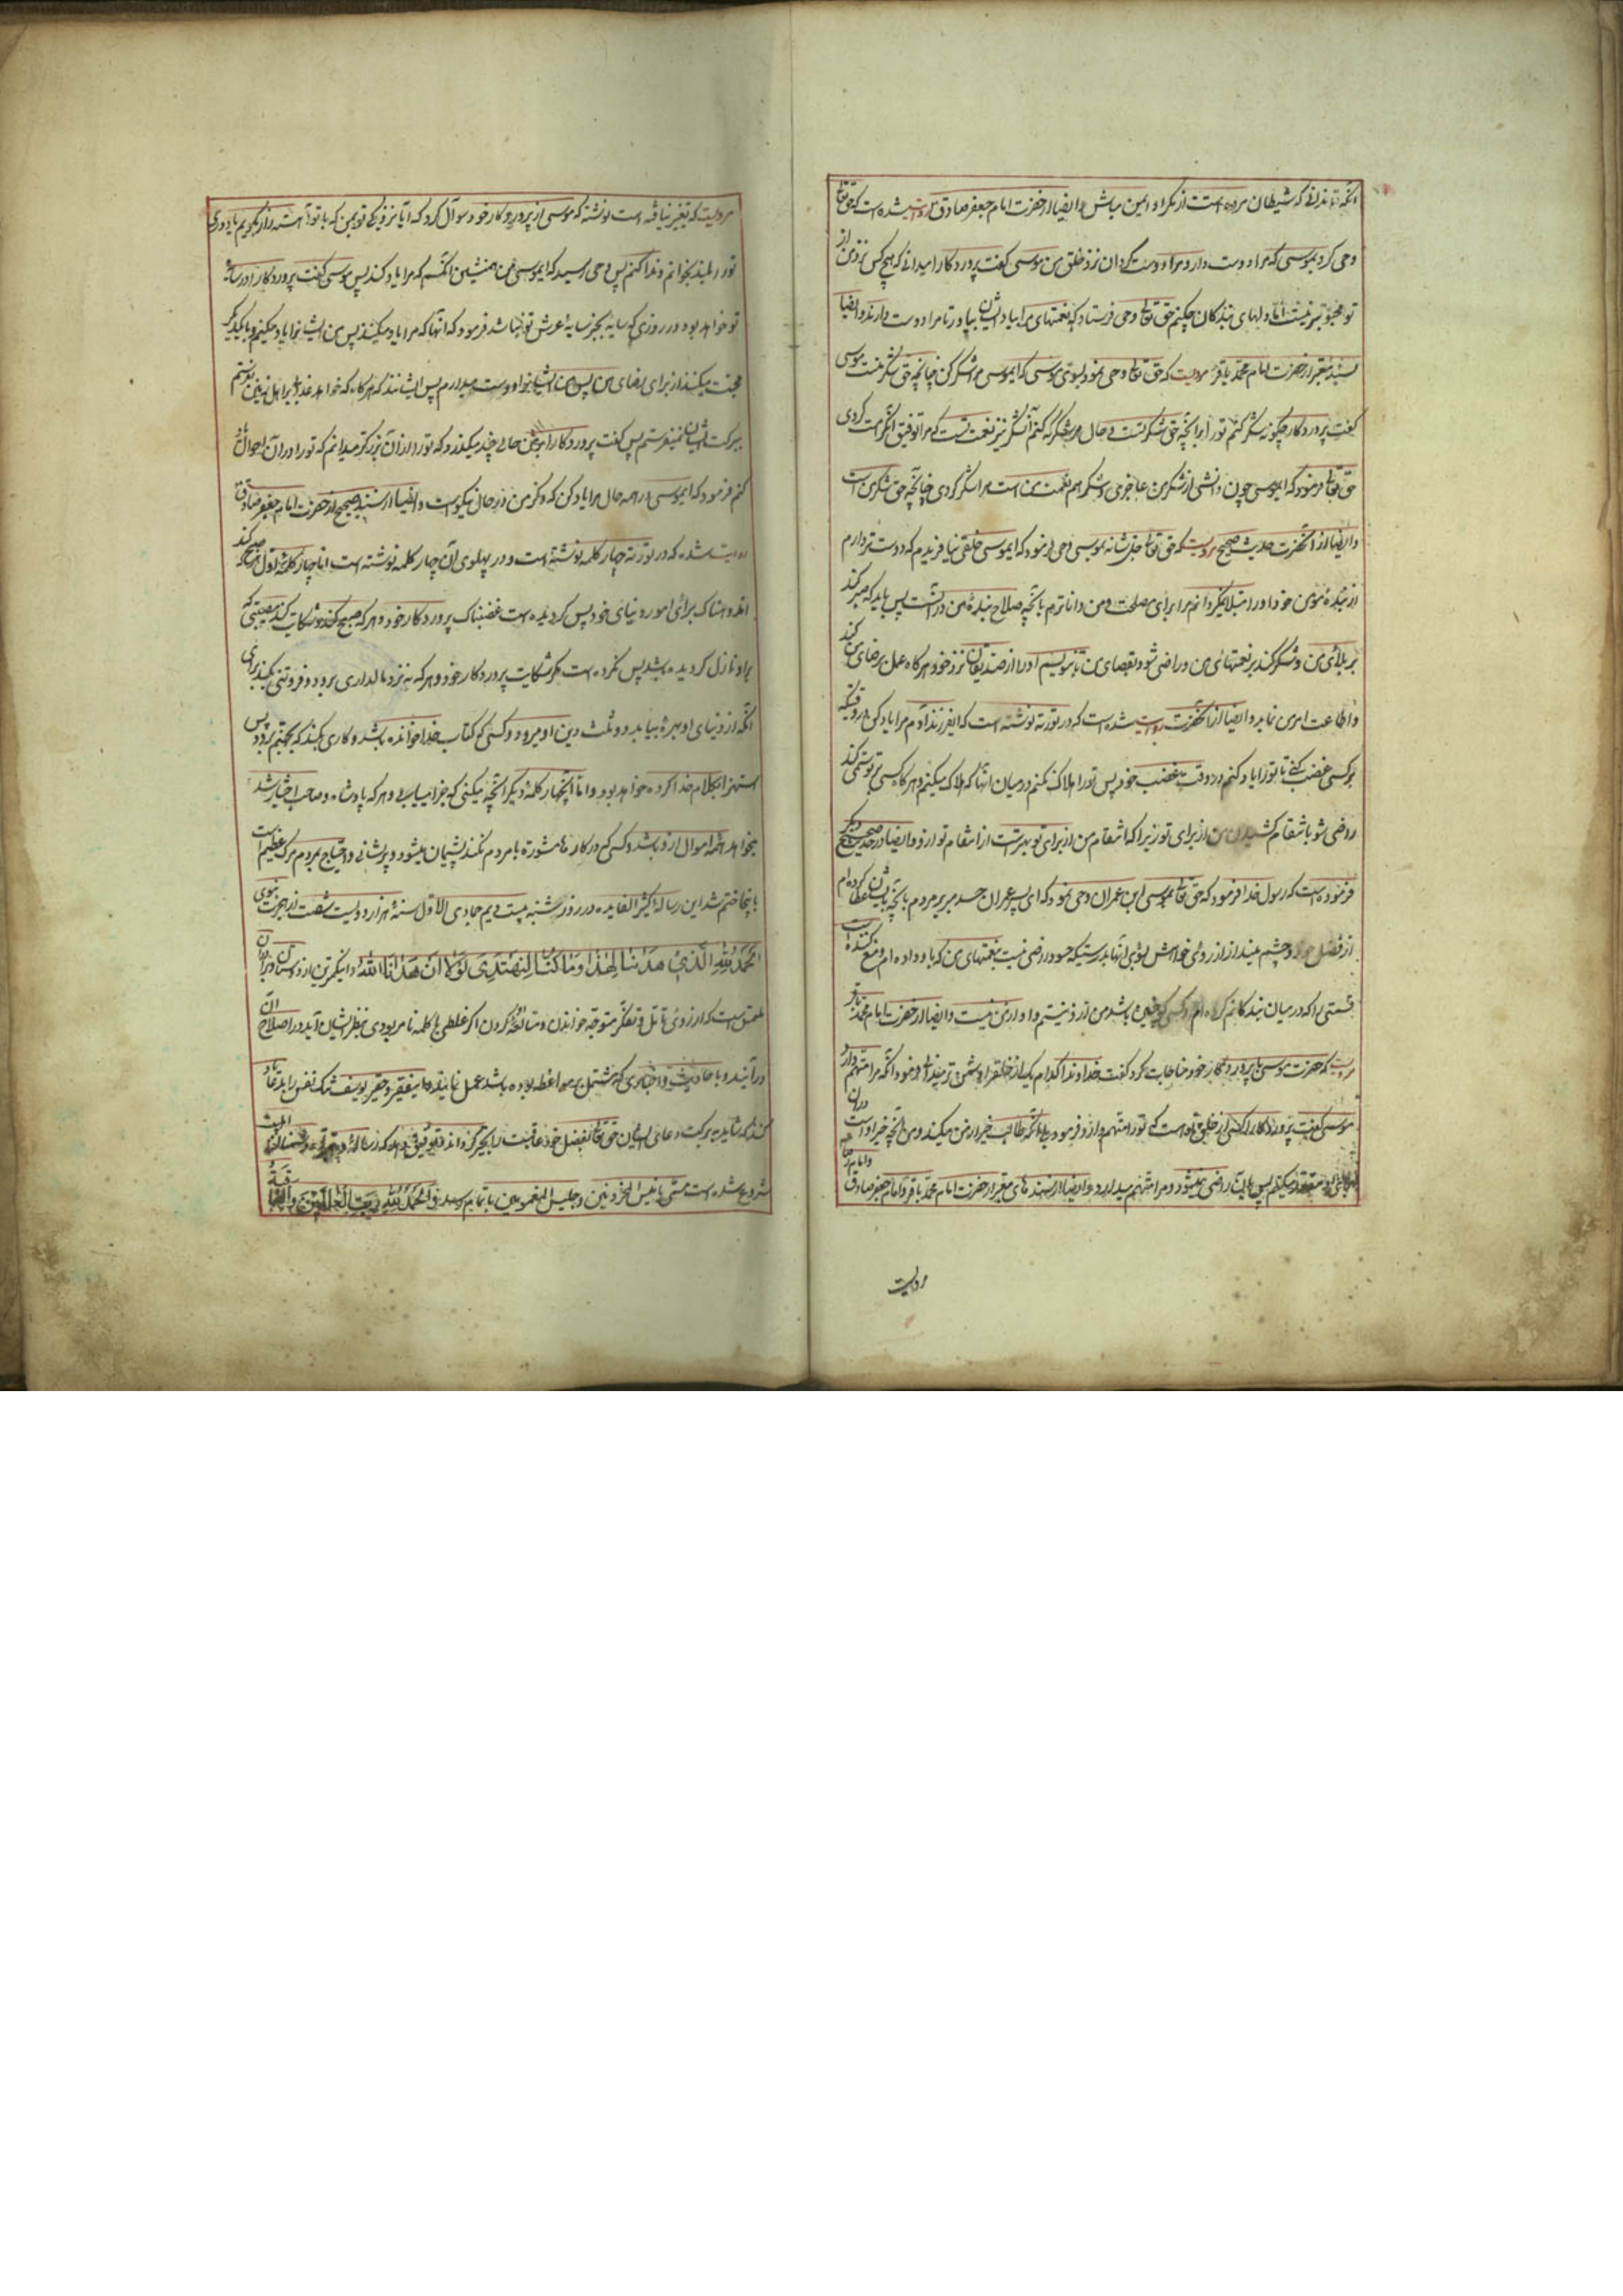 آنکه تا ندانی که شیطان مرده است از مکر او ایمن مباش و ایضا از حضرت امام جعفر صادق روایت شده است که حق تعالی
وحی کرد بموسی که مرا دوست دار و مرا دوست گردان نزد خلق من موسی گفت پروردگارا میدانی که هیچ کس نزد من از
تو محبوبتر نیست اما دلهای بندگان چکنم حق تعالی وحی فرستاد که نعمتهای مرا بیاد ایشان بیاور تا مرا دوست دارند و ایضا
بسند معتبر از حضرت امام محمد باقر مرویست که حق تعالی وحی نمود بسوی موسی که ایموسی مرا شکر کن چنانچه حق شکر منست موسی
گفت پروردگارا چگونه شکر کنم تو را برآنچه حق شکر تست و حال هر شکر که کنم آن شکر نیز نعمت تست که مرا توفیق آنکرامت کردی
حق تعالی فرمود که ایموسی چون دانستی از شکر من عاجزی و شکر هم نعمت من است مرا شکر کردی چنانچه حق شکر من است
و ایضا از آنحضرت بحدیث صحیح مرویست که حق تعالی جل شانه بموسی وحی فرمود که ایموسی خلقی نیافریدم که دوست تر دارم
از بنده مؤمن خود او را مبتلا نمیگردانم مرا برای مصلحت و من داناترم بآنچه صلاح بنده من در آنست پس باید که صبر کند
بر بلای من و شکر کند بر نعمتهای من و راضی شود بقضای من تا بنویسم او را از صدیقان نزد خود هرگاه عمل برضای من کند
و اطاعت امر من نماید و ایضا از آنحضرت روایت شده است که در توریة نوشته است که ایفرزند آدم مرا یاد کن در وقتیکه
بر کسی غضب کنی تا تو را یاد کنم در وقت غضب خود پس تو را هلاک نکنم در میان آنها که هلاک میکنم و هرگاه کسی بر تو ستمی کند
راضی شو بانتقام کشیدن من از برای تو زیرا که انتقام من از برای تو بهتر است از انتقام تو از او و ایضا در حدیث صحیح دیگر
فرموده است که رسول خدا فرمود که حق تعالی بموسی ابن عمران وحی نمود که ای پسر عمران حسد مبر بر مردم بآنچه بایشان عطا کرده ام
از فضل خود و چشم مینداز از روی خواهش بسوی آنها بدرستیکه حسود راضی نیست بنعمتهای من که باو داده ام و منع کننده است
قسمتی را که در میان بندگانم کرده ام و کسی که چنین باشد من از او نیستم و او از من نیست و ایضا از حضرت امام محمد باقر
مرویست که حضرت موسی با پروردگار خود مناجات کرد گفت خداوندا کدام یک از خلق را دشمن تر میداری فرمود آنکه مرا متهم دارد
موسی گفت پروردگارا کسی از خلق تو هست که تو را متهم دارد فرمود بلی آنکه طالب خیر از من میکند و من آنچه خیر او در آن است
برای او مقدر میکنم پس بآن راضی نمیشود و مرا متهم میدارد و ایضا از سندهای معتبر از حضرت امام محمد باقر و امام جعفر صادق و امام رضا
روایت
مرویست که تغیر نیافته است نوشته که موسی از پروردگار خود سوآل کرد که آیا نزدیکی تو بمن که با تو آهسته راز بگویم یا دوری
تو را بلند بخوانم و ندا کنم پس وحی رسید که ایموسی من همنشین آنکسم که مرا یاد کند پس موسی گفت پروردگارا در سایه
تو خواهد بود در روزی که سایه بجز سایه عرش تو نباشد فرمود که آنها که مرا یاد میکنند پس من ایشانرا یاد میکنم و با یکدیگر
محبت میکنند از برای رضای من پس من ایشانرا دوست میدارم پس ایشانند که هرگاه که خواهم عذاب بر اهل زمین بفرستم
ببرکت ایشان نمیفرستم پس گفت پروردگارا بر من حالی چند میگذرد که تو را از آن بزرگتر میدانم که تو را در آن احوال یاد
کنم فرمود که ایموسی در همه حال مرا یاد کن که ذکر من در هر حال نیکوست و ایضا از سند صحیح از حضرت امام جعفر صادق
روایت شده که در توریة چهار کلمه نوشته است و در پهلوی آن چهار کلمه نوشته است اما چهار کلمه اول هر که صبح کند
اندوهناک برای امور دنیای خود پس گردیده است غضبناک پروردگار خود و هر که صبح کند و شکایت کند مصیبتی که
براو نازل گردیده باشد پس نکرده است مگر شکایت پروردگار خود و هر که به نزد مالداری برود و فروتنی بکند برای
آنکه از دنیای او بهره بیابد دو ثلث دین او میرود و کسی که کتاب خدا خوانده باشد و کاری بکند که بجهنم برود پس
استهزا بکلام خدا کرده خواهد بود و اما آنچهار کلمه دیگر آنچه میکنی که جزا مییابی و هر که پادشاه و صاحب اختیار شد
بخواهد همه اموال از او باشد و کسی که در کارها مشورة با مردم نکند پشیمان میشود و پریشانی و احتیاج بمردم مرگ عظیم است
باینجا ختم شد این رساله کثیر الفایده در روز شنبه بیستم جمادی الاول سنه هزار و دویست شصت از هجرت نبوی
الحمد لله الذی هدانا لهذا وما کنا لنهتدی لولا ان هدانا الله و اینکمترین از دوستان و برادران
ملتمس است که از روی تامل و تفکر متوجه خواندن و مطالعه کردن اگر غلطی یا کلمه نامربوطی بنظر ایشان آید در اصلاح آن
درآیند و باحادیث و اخباری که مشتمل بر مواعظ بوده باشد عمل نمایند و اینفقیر و حقیر یوسف را بدعا یاد
کنند که شاید ببرکت دعای ایشان حق تعالی بفضل خود عاقبت را بخیر گرداند و توفیق دهد که رساله
شروع شده است مسمی بانیس المحزونین و جلیس المغمومین باتمام رسد و الحمد لله رب العالمین